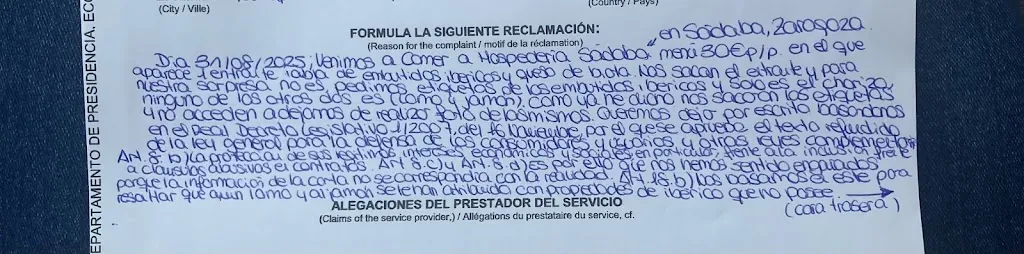 (City / Ville)
(Country / Pays)
DEPARTAMENTO DE PRESIDENCIA, ECO
FORMULA LA SIGUIENTE RECLAMACIÓN:
(Reason for the complaint / motif de la réclamation)
en Sádaba, Zaragoza.
Día 31/08/2025, Venimos a Comer a Hospedería Sádaba" menú 30€ p/p. en el que
aparece 1 entrante tabla de embutidos ibéricos y queso de bola. Nos sacan el entrante y para
nuestra sorpresa no es, pedimos etiquetas de los embutidos ibéricos y solo es el chorizo,
ninguno de los otros dos es (lomo y jamón). Como ya he dicho nos sacaron las etiquetas
y no acceden a dejarnos de realizar foto de las mismos. Queremos dejar por escrito basándonos
en el Real Decreto Legislativo 1/2007, del 16 Noviembre, por el que se aprueba el texto refundido
de la ley general para la defensa de los consumidores y usuarios y otras leyes complementarias
Art. 8. b) La protección de sus legítimos intereses económicos y sociales; en particular, frente a la inclusión frente
a cláusulas abusivas el contratos. Art 8 c) y Art 8 d) es por ello que nos hemos sentido engañados
porque la información de la carta no se correspondía con la realidad. Art 18. b) los basamos el este para
resaltar que a un lomo y a jamón se le han atribuido con propiedades de ibérico que no posee →
(cara trasera)
ALEGACIONES DEL PRESTADOR DEL SERVICIO
(Claims of the service provider,) / Allégations du prestataire du service, cf.